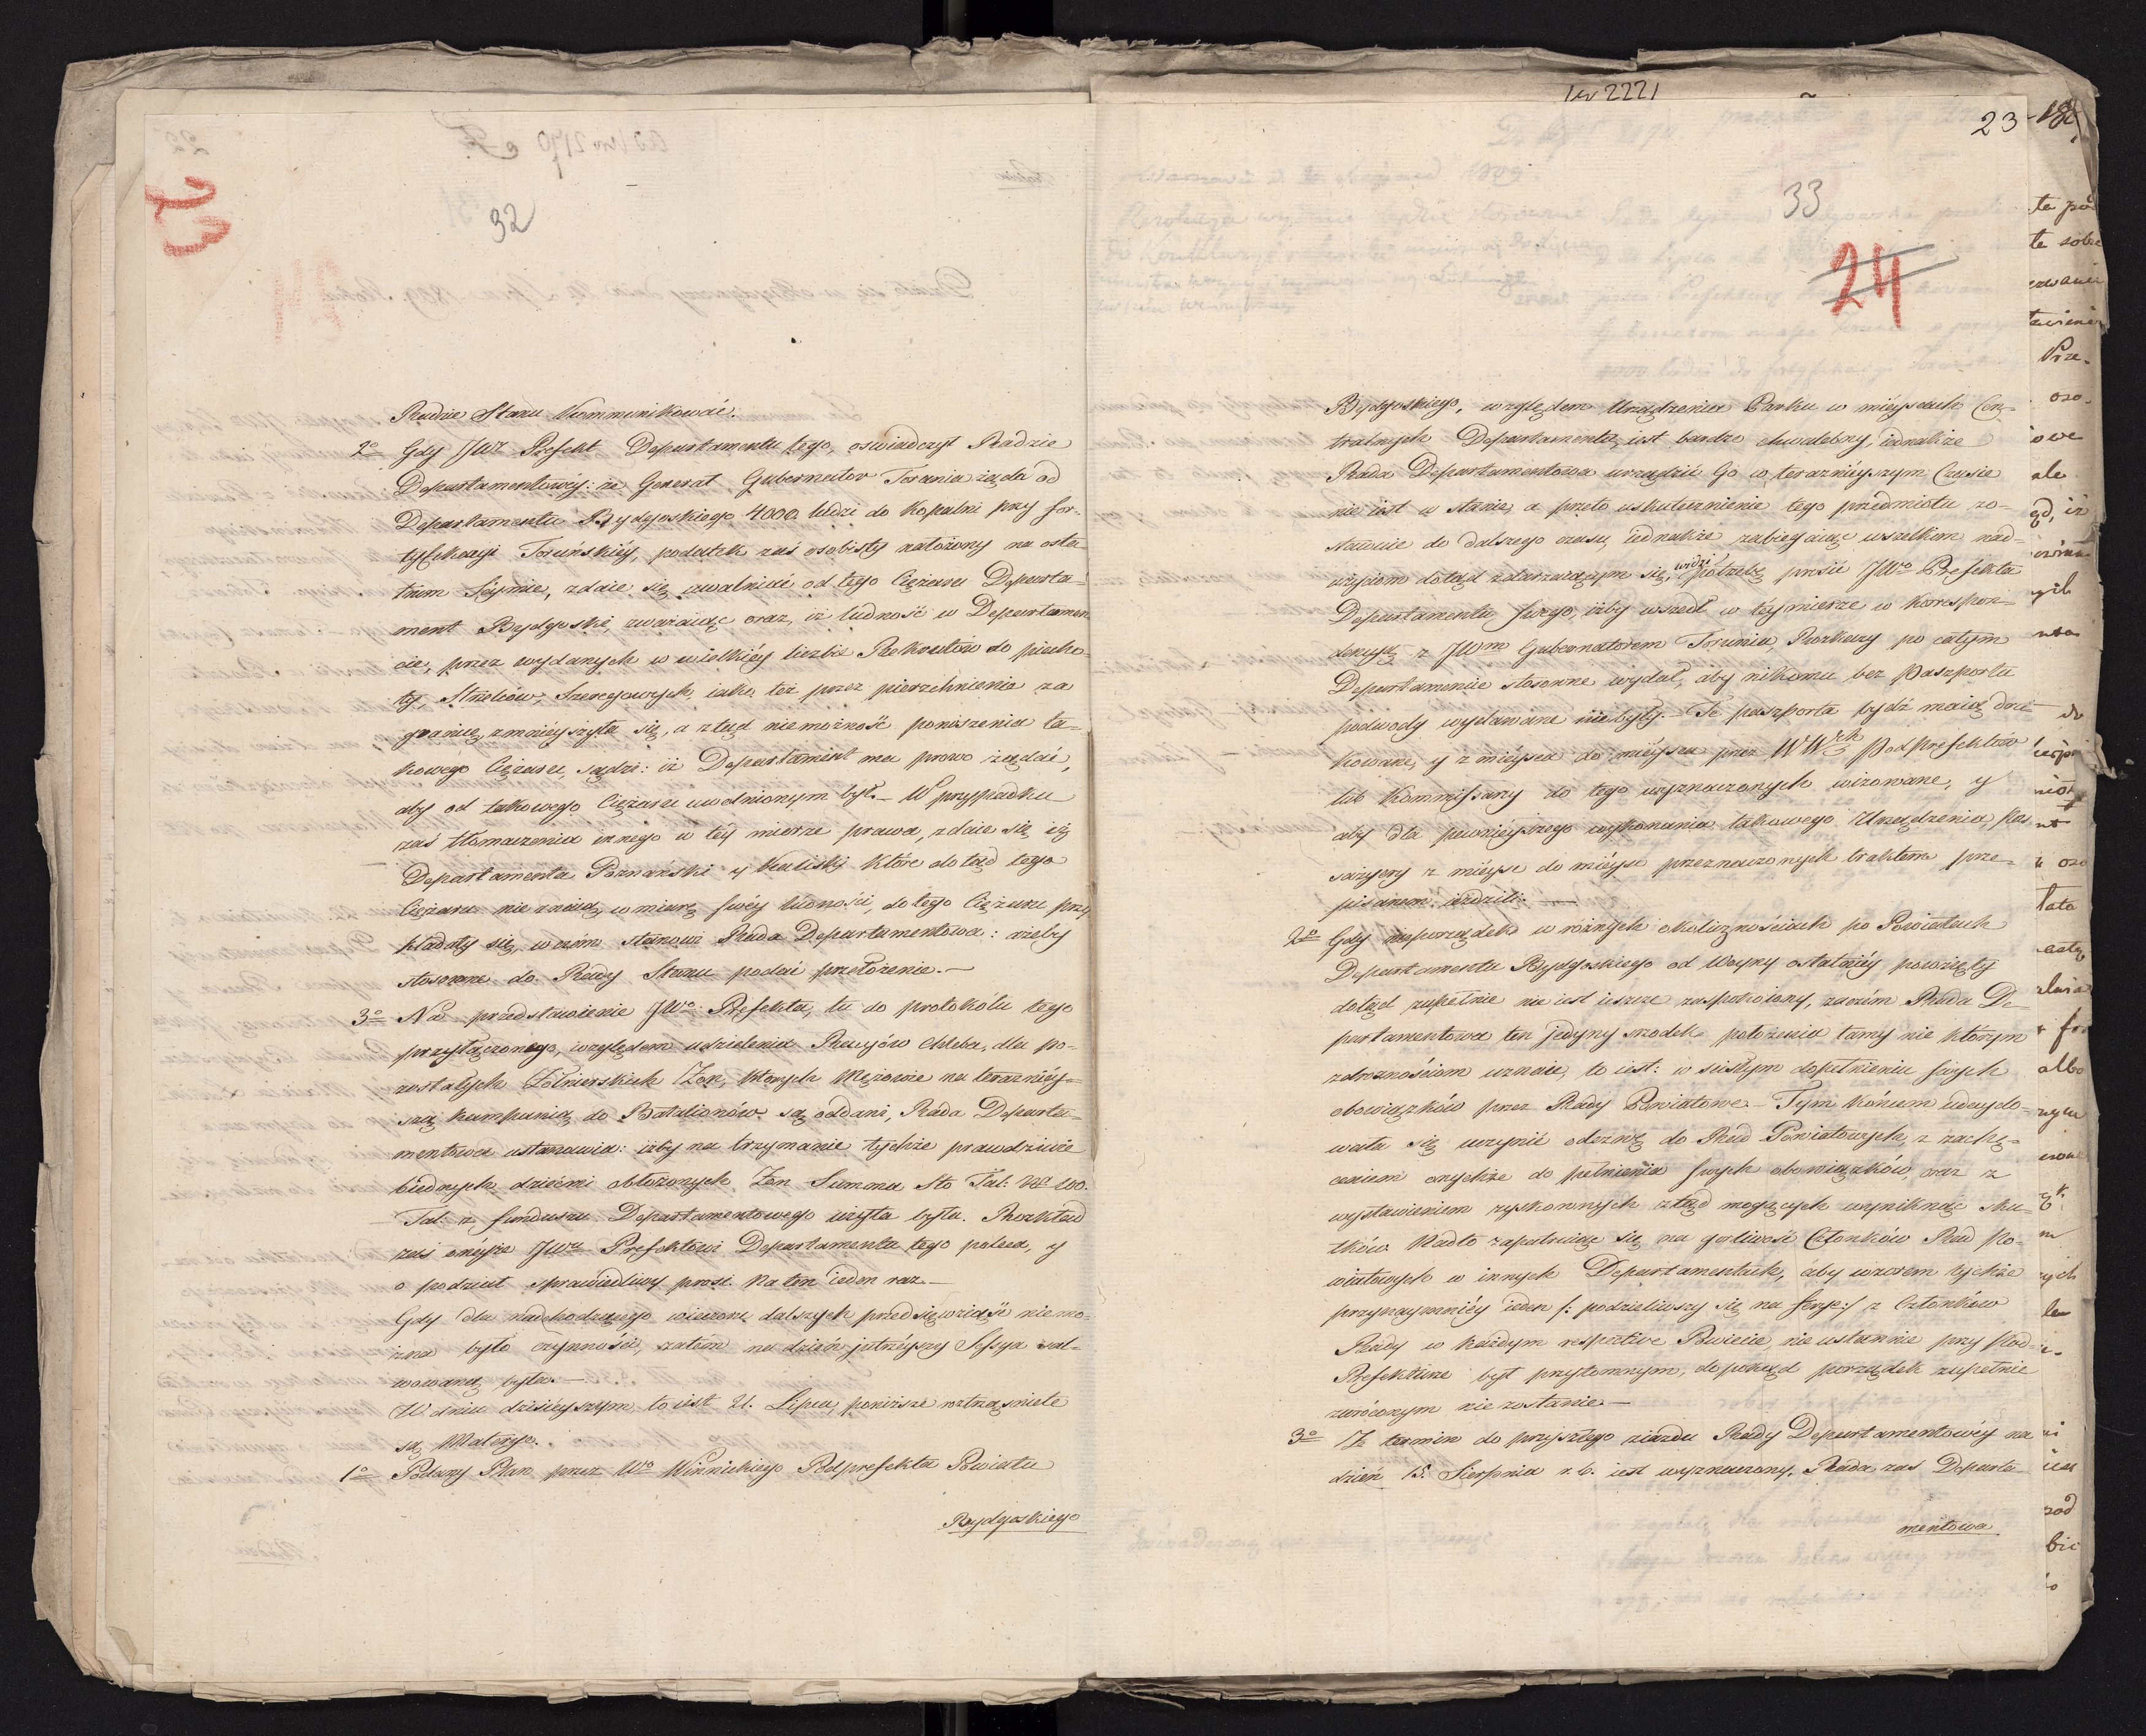 32
Radzie Stanu Kommunikować.
2o Gdy JWr Prefekt Departamentu tego, oswiadczył Radzie
Departamentowéy: że Generał Gubernator Torunia żąda od
Departamentu Bydgoskiego 4000 ludzi do Kopalni przy for-
tyfikacyi Toruńskiéy, podatek zaś osobisty nałożony na osta-
tnim Seymie, zdaie się uwalniać od tego Ciężaru Departa-
ment Bydgoski, zważaiąc oraz, iż ludność w Departamen-
cie, przez wydanych w wielkiéy liczbie Rekrutów do piecho-
ty, Strzelców, Szeregowych, iako też przez pierzchnienia za
granicę zmnieyszyła się, a ztąd niemożność ponoszenia ta-
kowego Ciężaru, sądzi: iż Departament ma prawo żądać,
aby od takowego Ciężaru uwolnionym był. – W przypadku
zaś tłomaczenia innego w téy mierze prawa, zdaie się iż
Departamenta Poznański y Kaliski które dotąd tego
Ciężaru nie znaią, w miarę swéy ludności, do tego Ciężaru przy-
kładały się, w czém stanowi Rada Departamentowa: ażeby
stosowne do Rady Stanu podać przełożenie. –
3o Na przedstawienie JWo Prefekta, tu do protokółu tego
przyłączonego, względem udzielenia Racyów chleba, dla po-
zostałych Żołnierskich Żon, których Mężowie na teraznéy-
szą kampanią do Batalionów są oddani, Rada Departa-
mentowa ustanawia: iżby na trzymanie tychże prawdziwie
biednych dziećmi obłożonych Żon Summa Sto Tal: No 100.
Tal: z funduszu Departamentowego użyta była. Rozkład
zaś onéyże JWu Prefektowi Departamentu tego poleca, y
o podział sprawiedliwy prosi. Na ten ieden raz. –
Gdy dla nadchodzącego wieczora dalszych przedsięwziąść niemo-
żna było czynności, zatém na dzień jutrzéyszy Sessya sol-
wowaną była. –
W dniu dzisiéyszym, to iest 21. Lipca, poniższe roztrząśniete
są Materye.
1o Podany Plan przez Wo Winnickiego Podprefekta Powiatu
Bydgoskiego
1w 2221
23
33
24
Bydgoskiego, względem Urządzenia Parku w mieyscach Cen-
tralnych Departamentu, iest bardzo chwalebny, iednakże
Rada Departamentowa urządzić Go w teraznieyszym Czasie
nie iest w stanie, a przeto uskutecznienie tego przedmiotu zo-
stawuie do dalszego czasu, iednakże zabiegaiąc wszelkim nad-
użyciom dotąd zdarzaiącym się, widzi potrzebę prosić JWo Prefekta
Departamentu swego, iżby wszedł w téy mierze w Korrespon-
dencyą z JWm Gubernatorem Torunia, Rozkazy po całym
Departamencie stosowne wydał, aby nikomu bez Paszportu
podwody wydawane niebyły. – Te paszporta bydź maią dru-
kowane, y z mieysca do mieysca przez WWch Podprefektów
lub Kommissarzy do tego wyznaczonych wizowane, y
aby dla pewniéyszego wykonania takowego Urządzenia, Pas-
sażyery z mieysc do mieysc przeznaczonych traktem prze-
pisanym iezdzili. –
2o Gdy nieporządek w różnych okolicznościach po Powiatach
Departamentu Bydgoskiego od Woyny ostatniéy powzięty
dotąd zupełnie nie iest ieszcze zaspokoiony, zaczém Rada De-
partamentowa ten jedyny srodek położenia tamy nie którym
zdrożnościom uznaie, to iest: w scisłym dopełnieniu swych
obowiązków przez Rady Powiatowe. – Tym końcem udecydo-
wała się uczynić odezwę do Rad Powiatowych z zachę-
ceniem onychże do pełnienia swych obowiązków, oraz z
wystawieniem zyskownych ztąd mogących wyniknąć sku-
tków. Nadto zapatruiąc się na gorliwość Członków Rad Po-
wiatowych w innych Departamentach, aby wzorem tychże
przynaymniéy ieden /: podzieliwszy się na Sesye :/ z Członków
Rady w każdym respective Powiecie, nieustannie przy Pod-
Prefekturze był przytomnym, dopokąd porządek zupełnie
zwróconym nie zostanie. –
3o Iż termin do przyszłego ziazdu Rady Departamentowéy na
dzień 15. Sierpnia r. b. iest wyznaczony, Rada zas Departa-
mentowa